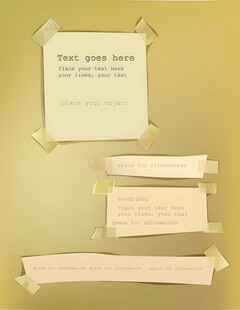 Text goes here
Place your text here
your lines, your text
place your object
space for information
Headliner
Place your text here
your lines, your text
space for information
space for information space for information space for information